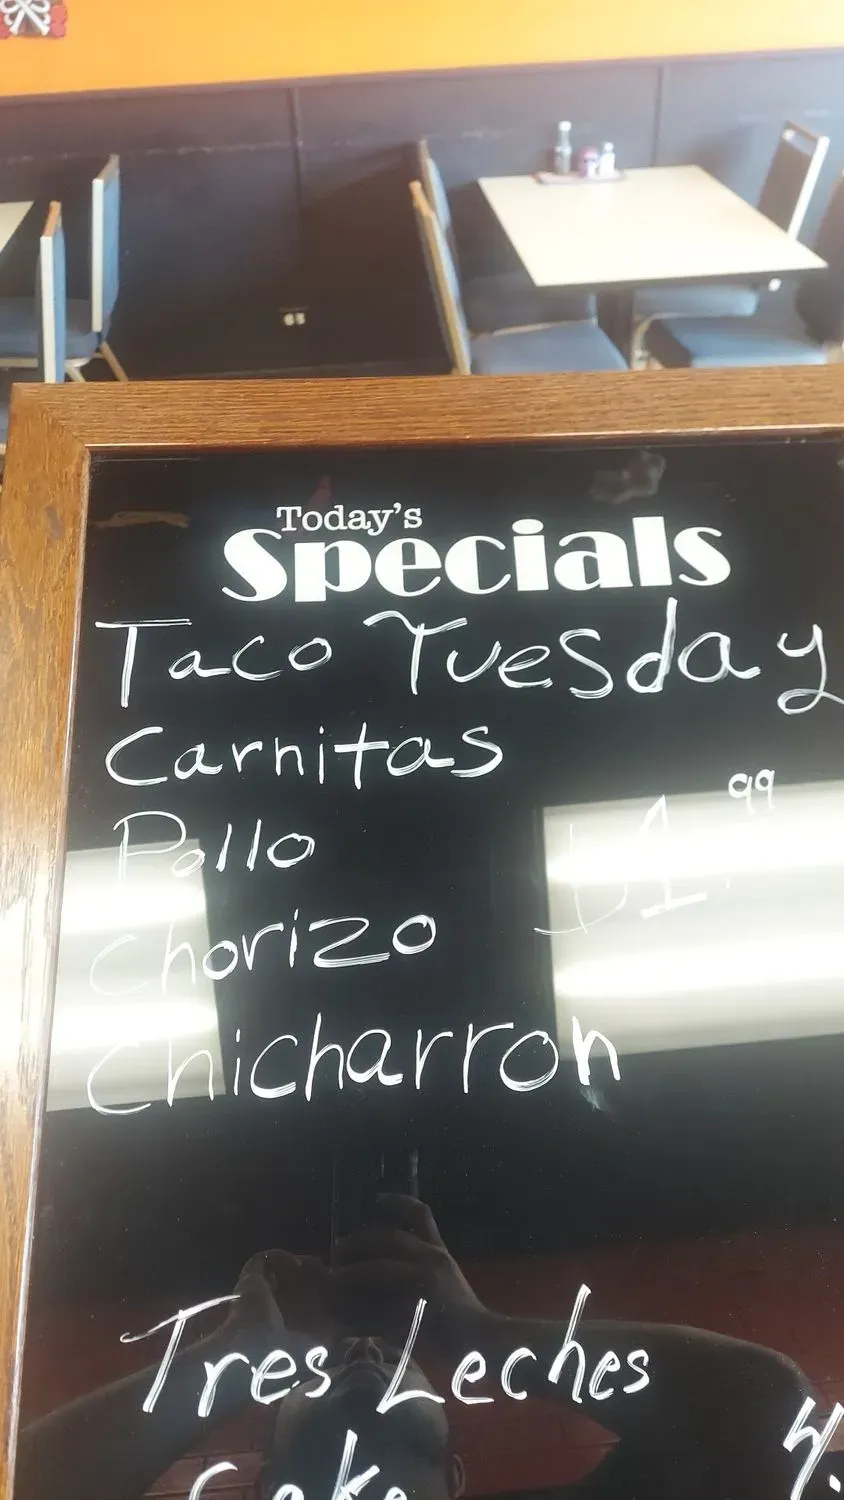 Today's
Specials
Taco Tuesday
Carnitas
Pollo
$1.99
Chorizo
Chicharron
Tres Leches
4.
Cake